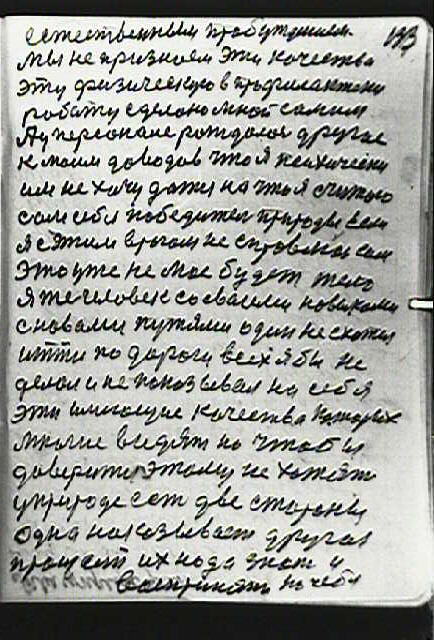 естественным пробуждением 193
мы не признаем эти качества
эту физическую в профилактени
работу сделано мной самим
А у персонале рождалос другое
к моим доводов что я психически
им не хочу даже на что я считаю
сам себя победител природы если
я с этим врагом не справлюс сам
Это уже не мое будет тело
Я же человек со своими новыками
с новами путями один не схотел
итти по дороги всех я бы не
делал и не показывал на себя
эти имеющие качества которых
многие видят но чтобы
доверится этому не хотят
у природе ест две стороны
Одна наказывает другая
прощает их нада знат и
воспринят на себя